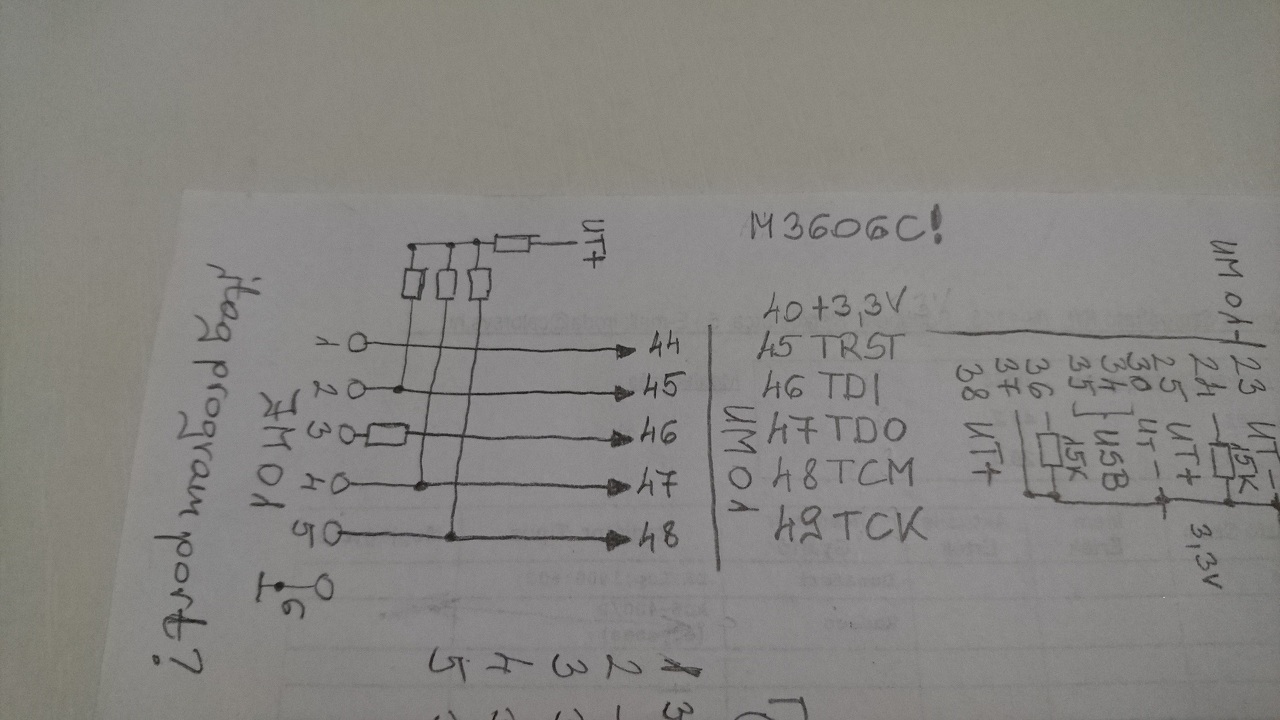 M3606C!
40 +3,3V
45 TRST
46 TDI
47 TDO
48 TCM
49 TCK
UM01
UT+
1
44
2
45
3
46
4
47
5
48
6
7M01
jtag program port?
UM01
23 UT-
24 15K
25 UT+
30 UT-
34
35 USB
36 15K
37
38 UT+
3,3V
1 2 3 4 5
3